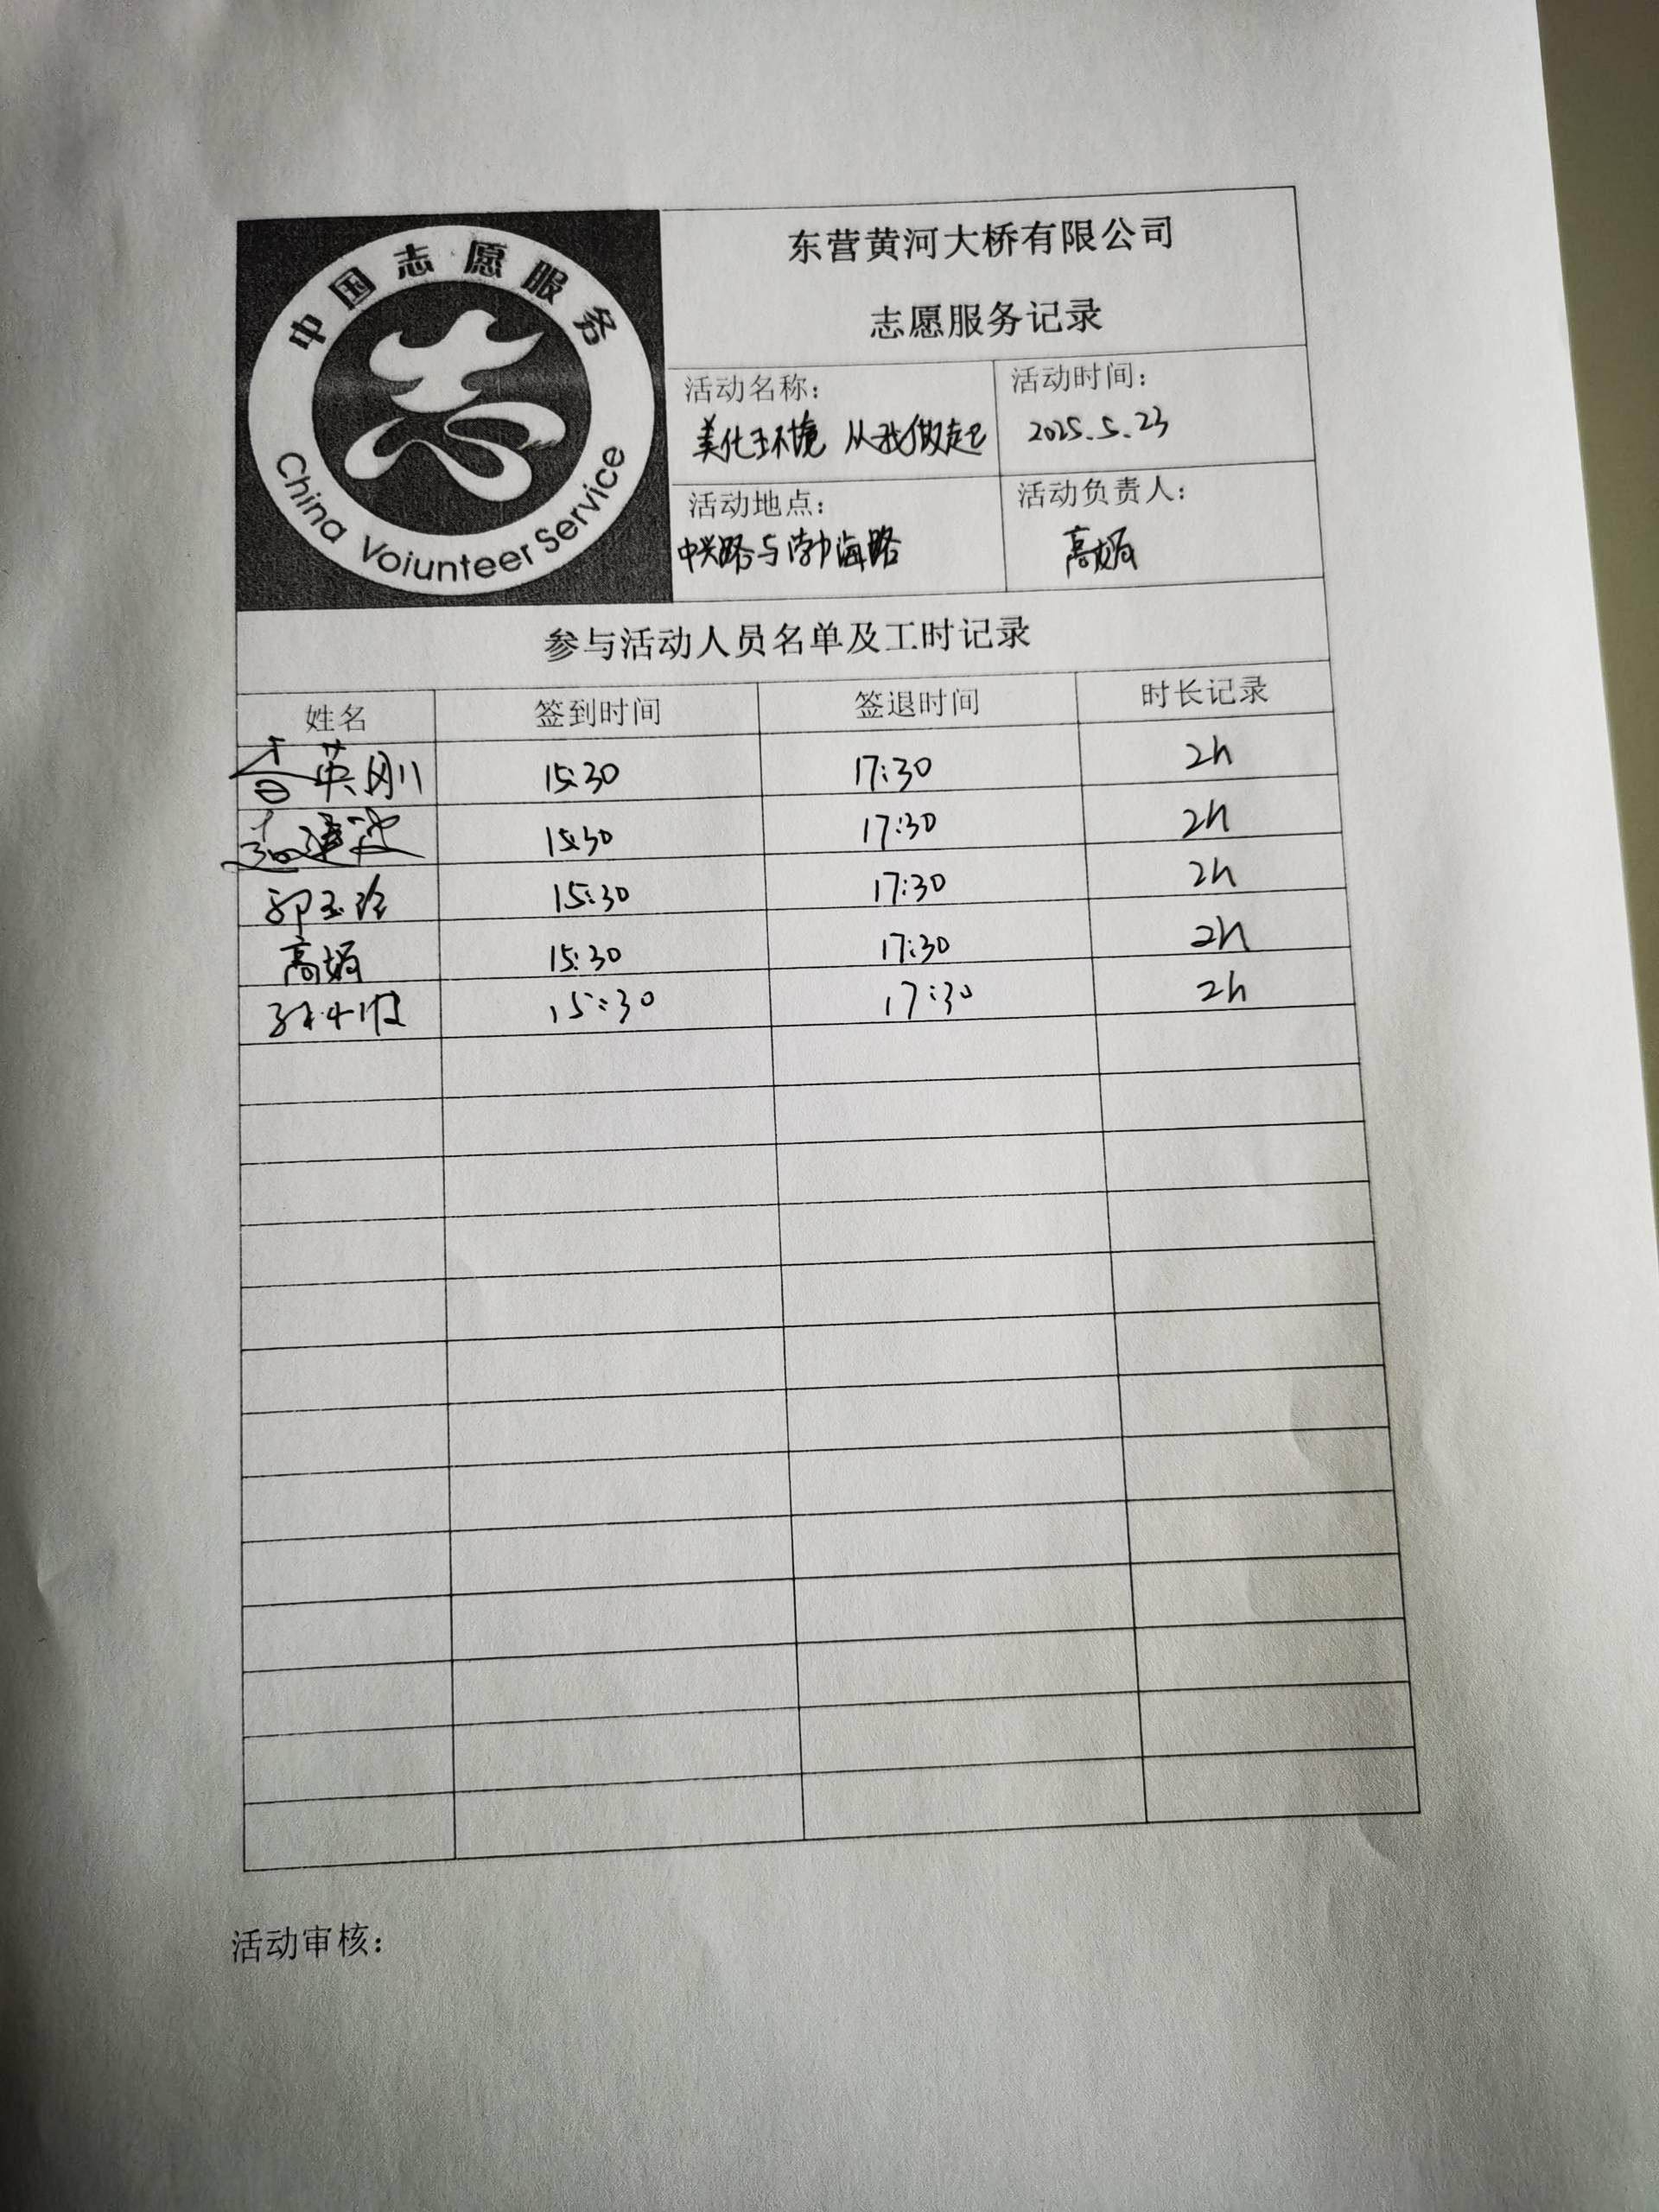 中国志愿服务
China Voiunteer Service
东营黄河大桥有限公司
志愿服务记录
活动名称：
美化环境 从我做起
活动时间：
2025.5.23
活动地点：
中兴路与渤海路
活动负责人：
高娟
参与活动人员名单及工时记录
姓名 签到时间 签退时间 时长记录
英刚 15:30 17:30 2h
15:30 17:30 2h
郭玉玲 15:30 17:30 2h
高娟 15:30 17:30 2h
15:30 17:30 2h
活动审核：